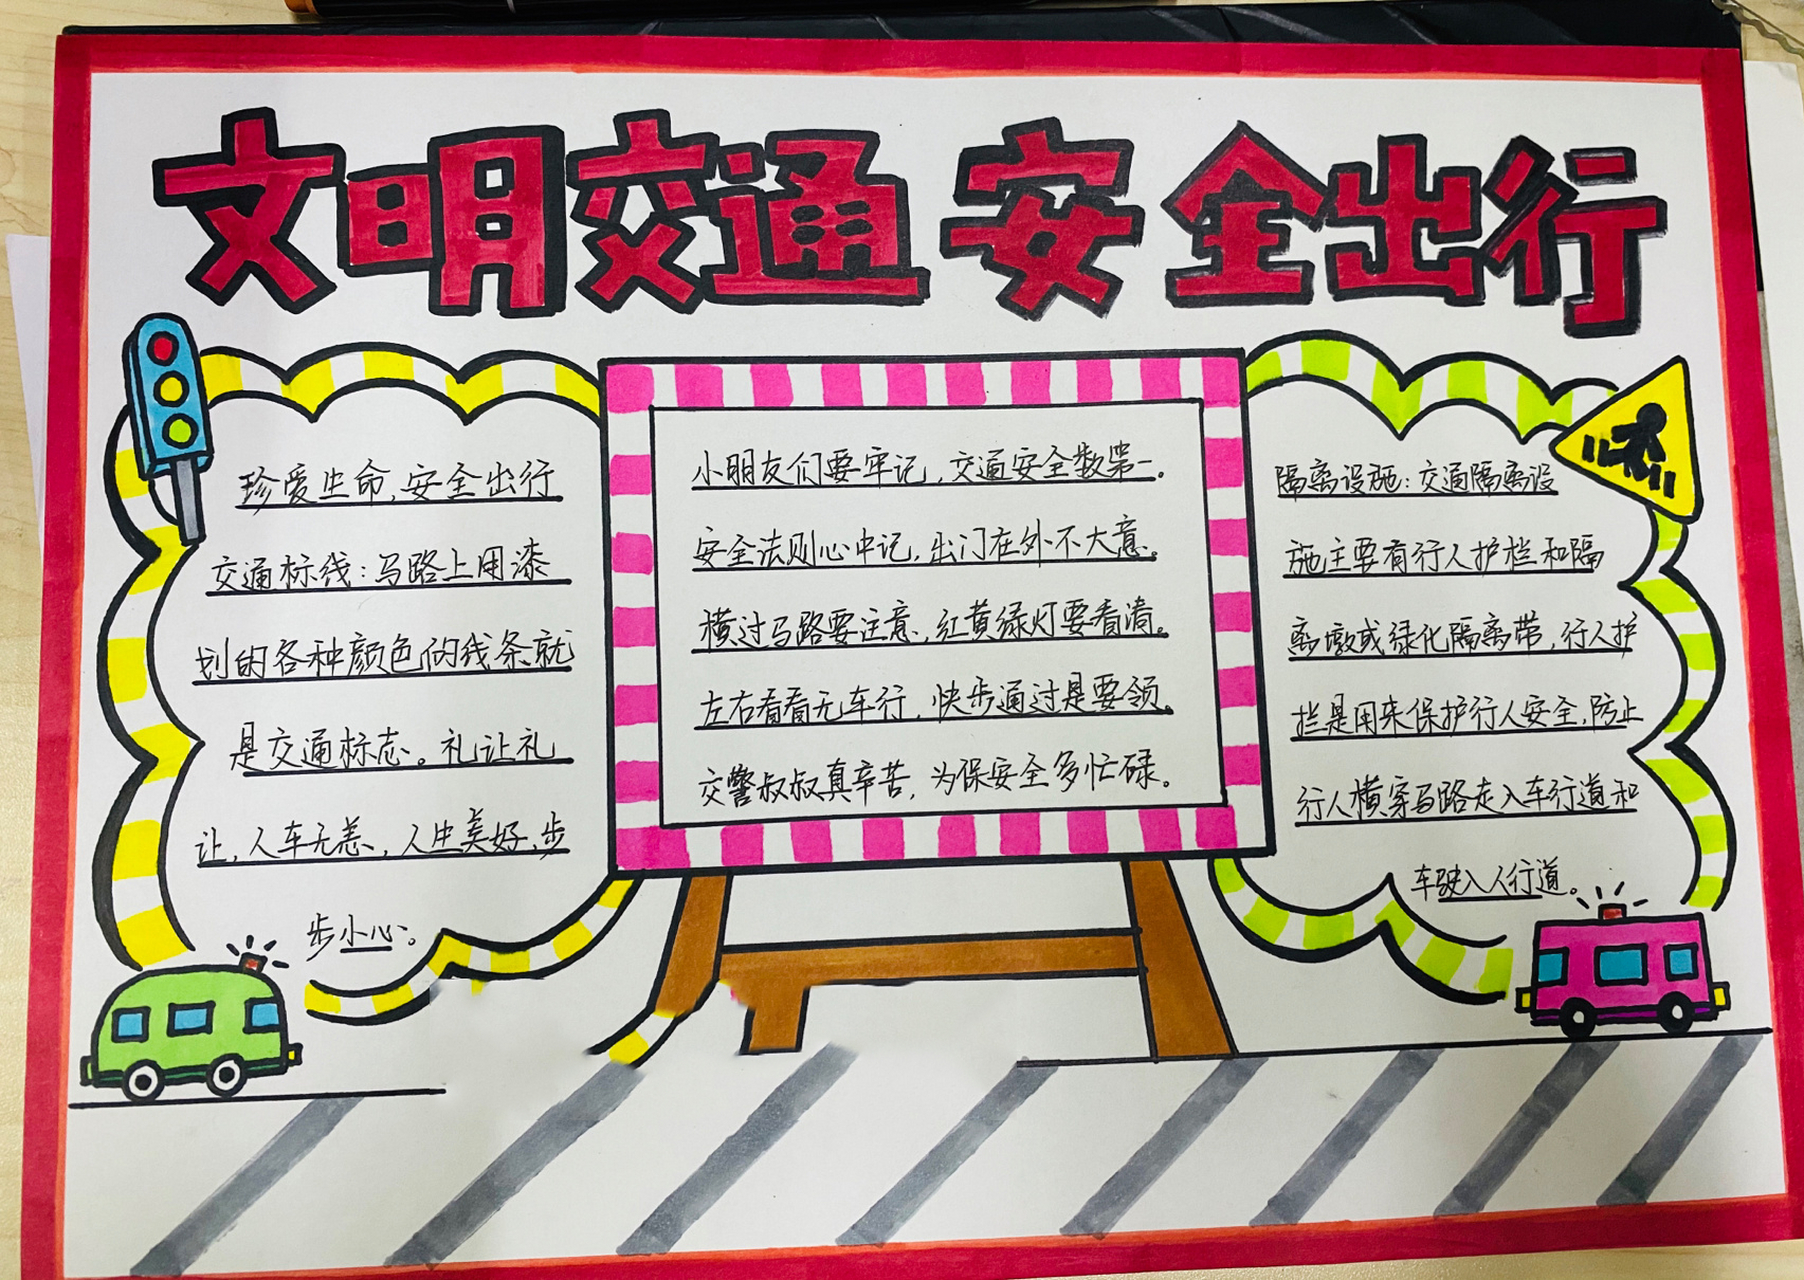 文明交通 安全出行
珍爱生命,安全出行
交通标线:马路上用漆
划的各种颜色的线条就
是交通标志。礼让礼
让,人车无恙,人生美好,步
步小心。
小朋友们要牢记,交通安全数第一。
安全法则心中记,出门在外不大意。
横过马路要注意,红黄绿灯要看清。
左右看看无车行,快步通过是要领。
交警叔叔真辛苦,为保安全多忙碌。
隔离设施:交通隔离设
施主要有行人护栏和隔
离墩或绿化隔离带,行人护
拦是用来保护行人安全,防止
行人横穿马路走入车行道和
车驶入人行道。